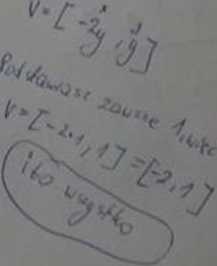 V = [-2y, y]
Podstawiasz zawsze 1, więc
V = [-2·1, 1] = [-2, 1]
i to wszystko